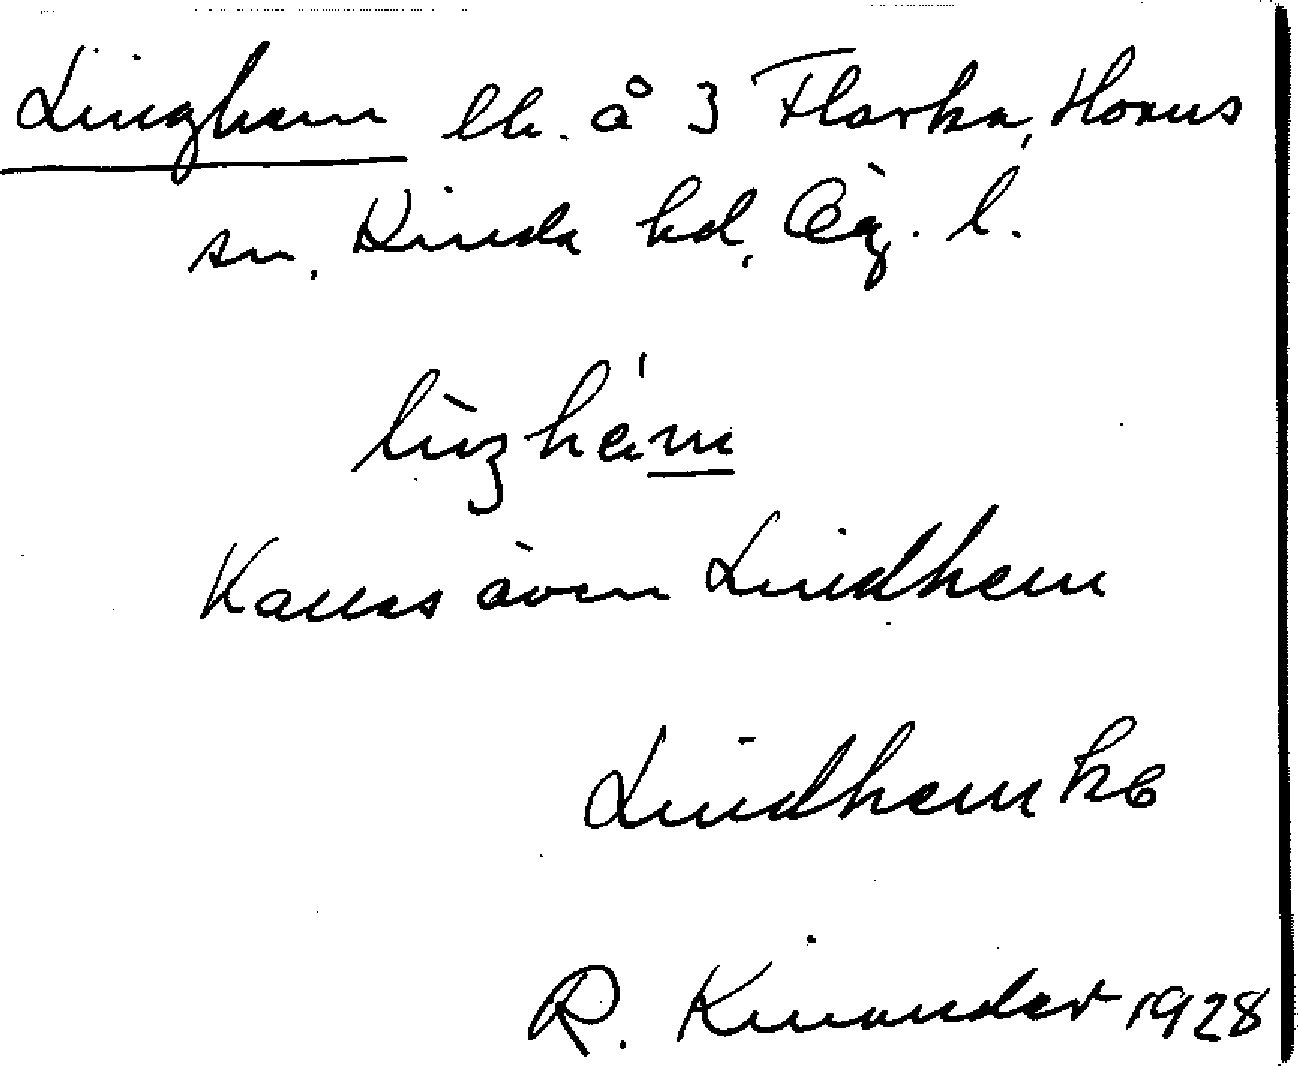 Linghem lh. å 3 Flarka, Horns
sn, Kinda hd, Ög. l.
lìŋhém
Kallas även Lindhem
Lindhem ke
R. Kinander 1928